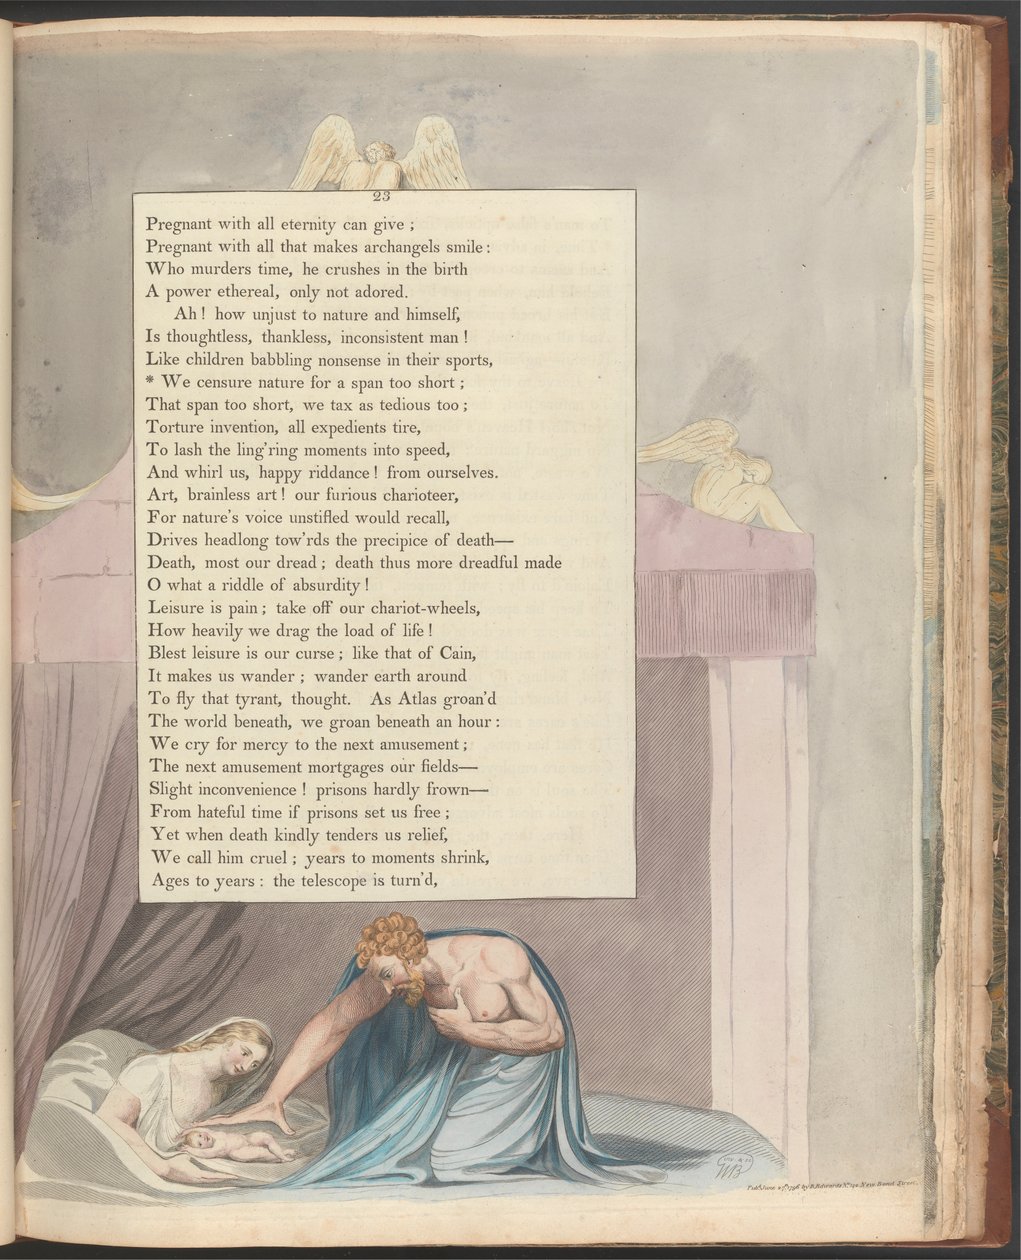 23
Pregnant with all eternity can give ;
Pregnant with all that makes archangels smile :
Who murders time, he crushes in the birth
A power ethereal, only not adored.
Ah ! how unjust to nature and himself,
Is thoughtless, thankless, inconsistent man !
Like children babbling nonsense in their sports,
* We censure nature for a span too short ;
That span too short, we tax as tedious too ;
Torture invention, all expedients tire,
To lash the ling'ring moments into speed,
And whirl us, happy riddance ! from ourselves.
Art, brainless art ! our furious charioteer,
For nature's voice unstifled would recall,
Drives headlong tow'rds the precipice of death—
Death, most our dread ; death thus more dreadful made
O what a riddle of absurdity !
Leisure is pain ; take off our chariot-wheels,
How heavily we drag the load of life !
Blest leisure is our curse ; like that of Cain,
It makes us wander ; wander earth around
To fly that tyrant, thought. As Atlas groan'd
The world beneath, we groan beneath an hour :
We cry for mercy to the next amusement ;
The next amusement mortgages our fields—
Slight inconvenience ! prisons hardly frown—
From hateful time if prisons set us free ;
Yet when death kindly tenders us relief,
We call him cruel ; years to moments shrink,
Ages to years : the telescope is turn'd,
inv & sc
WB
Pubd June 27th 1796 by R. Edwards No 142 New Bond Street